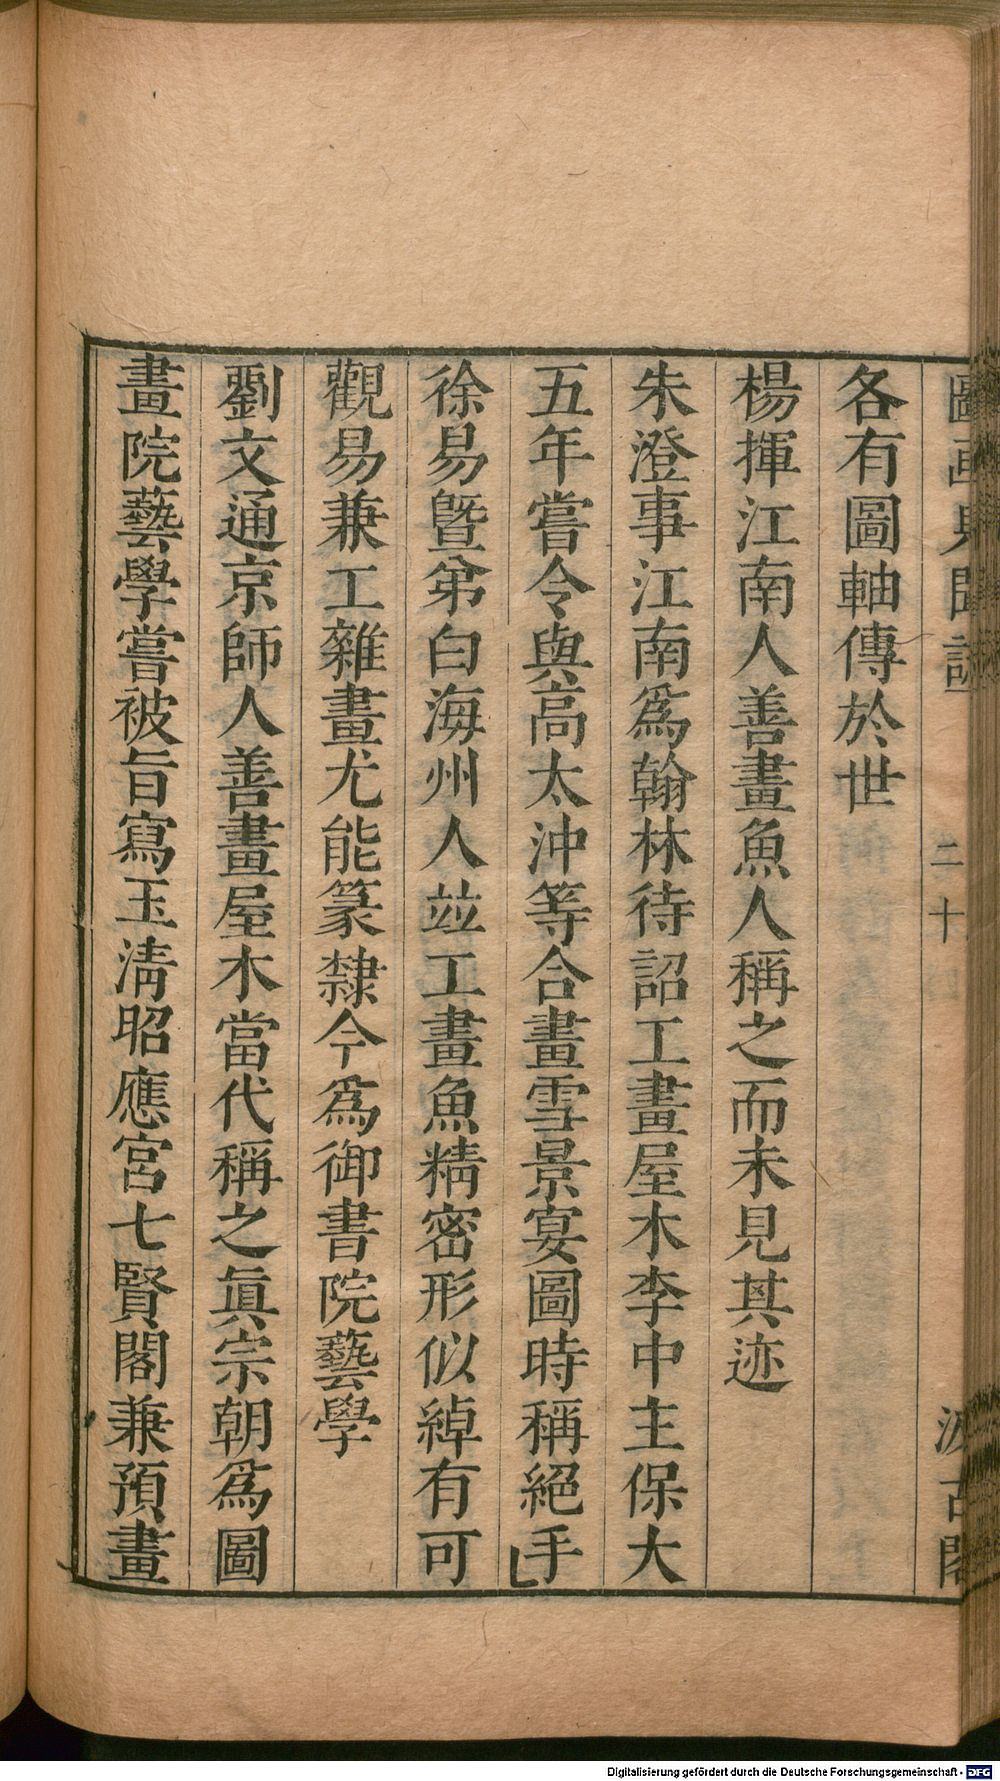 圖畫見聞誌
二十
汲古閣
各有圖軸傳於世
楊揮江南人善畫魚人稱之而未見其迹
朱澄事江南爲翰林待詔工畫屋木李中主保大
五年嘗令與高太沖等合畫雪景宴圖時稱絕手
徐易曁弟白海州人竝工畫魚精密形似綽有可
觀易兼工雜畫尤能篆隸今爲御書院藝學
劉文通京師人善畫屋木當代稱之眞宗朝爲圖
畫院藝學嘗被旨寫玉淸昭應宮七賢閣兼預畫
Digitalisierung gefördert durch die Deutsche Forschungsgemeinschaft - DFG